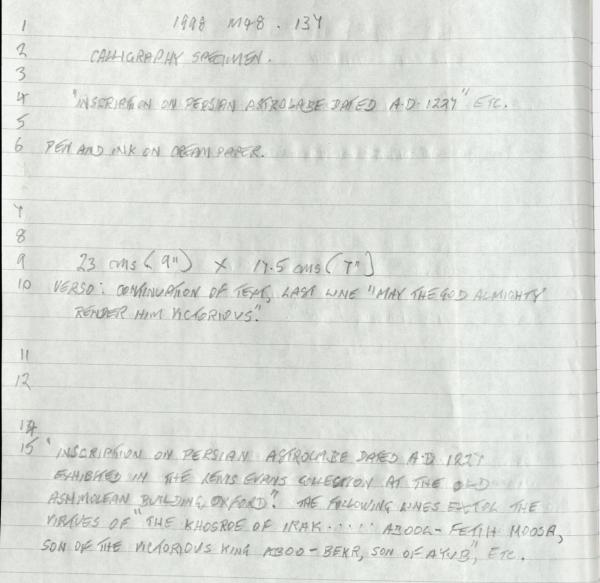 1 1998 M48. 137
2 CALLIGRAPHY SPECIMEN.
3
4 "INSCRIPTION ON PERSIAN ASTROLABE DATED A.D. 1227" ETC.
5
6 PEN AND INK ON CREAM PAPER.
7
8
9 23 cms (9") X 17.5 cms (7")
10 VERSO: CONTINUATION OF TEXT, LAST LINE "MAY THE GOD ALMIGHTY
RENDER HIM VICTORIOUS."
11
12
14
15 "INSCRIPTION ON PERSIAN ASTROLABE DATED A.D 1227
EXHIBITED IN THE LEWIS EVANS COLLECTION AT THE OLD
ASHMOLEAN BUILDING, OXFORD". THE FOLLOWING LINES EXTOL THE
VIRTUES OF "THE KHOSROE OF IRAK ..... ABOOL-FETIH MOOSA,
SON OF THE VICTORIOUS KING ABOO-BEKR, SON OF AYUB", ETC.